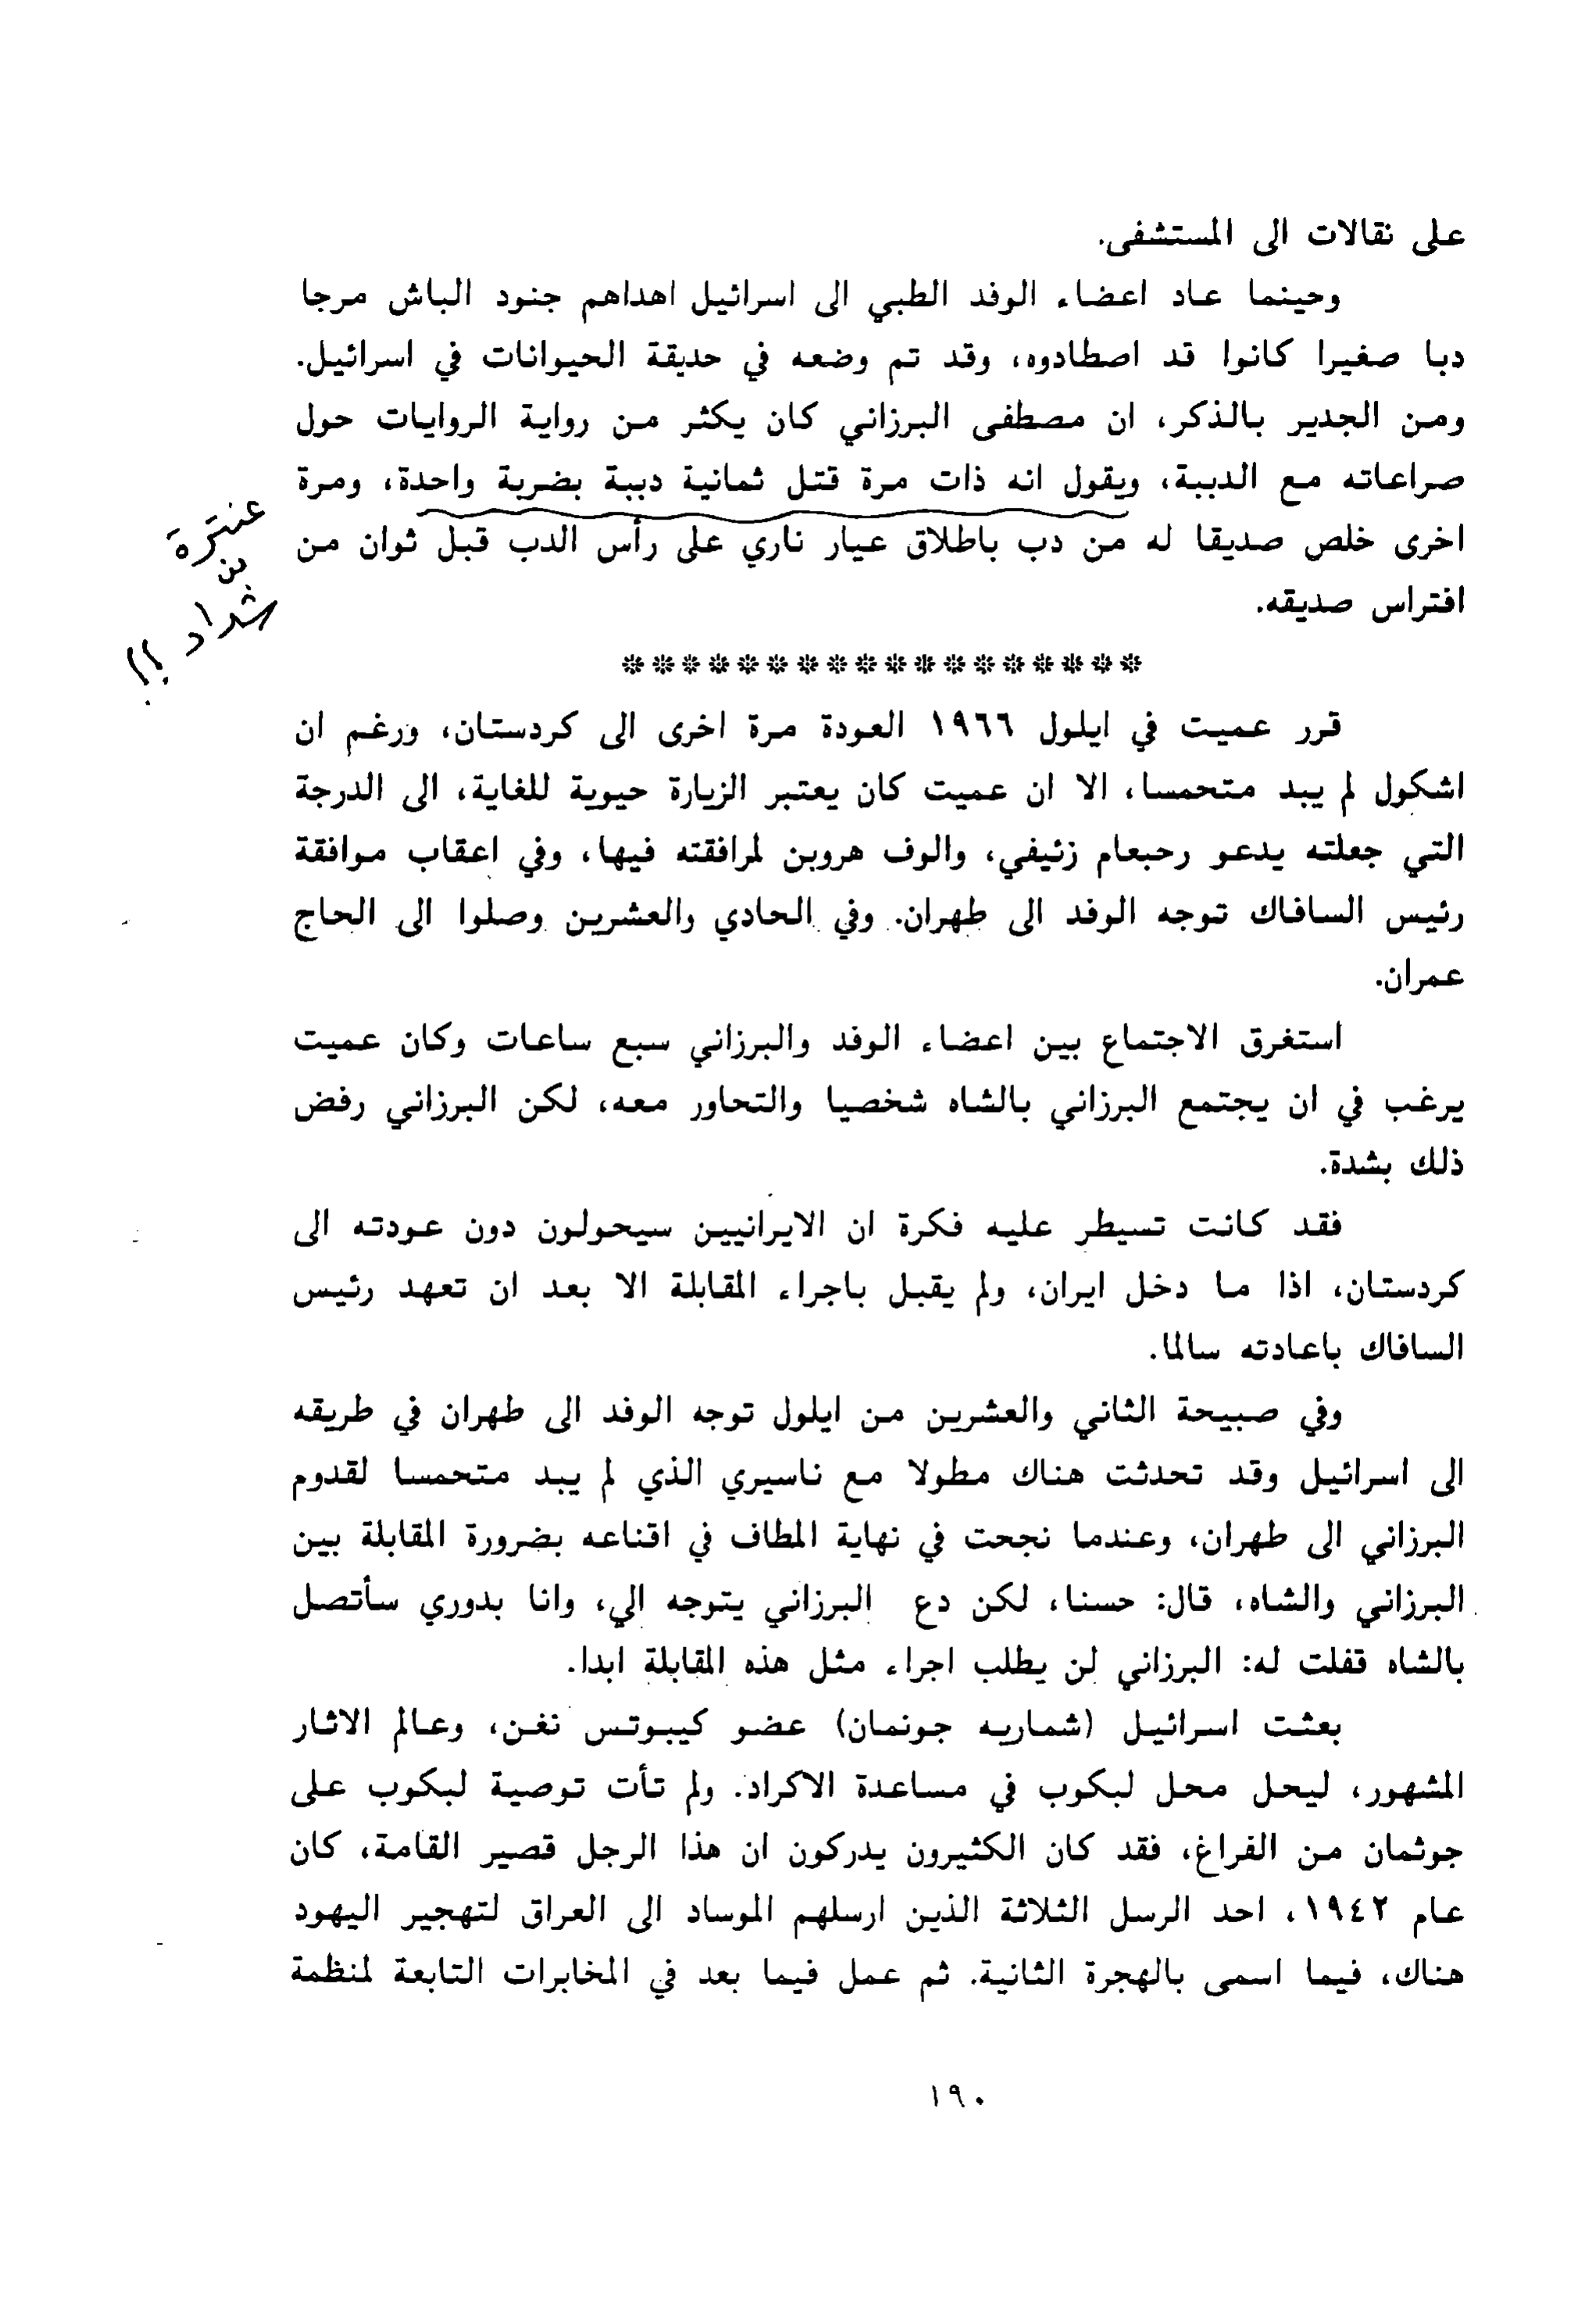 على نقالات الى المستشفى.
وحينما عاد اعضاء الوفد الطبي الى اسرائيل اهداهم جنود الباش مرجا
دبا صغيرا كانوا قد اصطادوه، وقد تم وضعه في حديقة الحيوانات في اسرائيل.
ومن الجدير بالذكر، ان مصطفى البرزاني كان يكثر من رواية الروايات حول
صراعاته مع الدببة، ويقول انه ذات مرة قتل ثمانية دببة بضربة واحدة، ومرة
اخرى خلص صديقا له من دب باطلاق عيار ناري على رأس الدب قبل ثوان من
افتراس صديقه.
عنترة
بن
شداد !!
******************
قرر عميت في ايلول ١٩٦٦ العودة مرة اخرى الى كردستان، ورغم ان
اشكول لم يبد متحمسا، الا ان عميت كان يعتبر الزيارة حيوية للغاية، الى الدرجة
التي جعلته يدعو رحبعام زئيفي، والوف هروبن لمرافقته فيها، وفي اعقاب موافقة
رئيس السافاك توجه الوفد الى طهران. وفي الحادي والعشرين وصلوا الى الحاج
عمران.
استغرق الاجتماع بين اعضاء الوفد والبرزاني سبع ساعات وكان عميت
يرغب في ان يجتمع البرزاني بالشاه شخصيا والتحاور معه، لكن البرزاني رفض
ذلك بشدة.
فقد كانت تسيطر عليه فكرة ان الايرانيين سيحولون دون عودته الى
كردستان، اذا ما دخل ايران، ولم يقبل باجراء المقابلة الا بعد ان تعهد رئيس
السافاك باعادته سالما.
وفي صبيحة الثاني والعشرين من ايلول توجه الوفد الى طهران في طريقه
الى اسرائيل وقد تحدثت هناك مطولا مع ناسيري الذي لم يبد متحمسا لقدوم
البرزاني الى طهران، وعندما نجحت في نهاية المطاف في اقناعه بضرورة المقابلة بين
البرزاني والشاه، قال: حسنا، لكن دع البرزاني يتوجه الي، وانا بدوري سأتصل
بالشاه قفلت له: البرزاني لن يطلب اجراء مثل هذه المقابلة ابدا.
بعثت اسرائيل (شماريه جونمان) عضو كيبوتس نغن، وعالم الاثار
المشهور، ليحل محل لبكوب في مساعدة الاكراد. ولم تأت توصية لبكوب على
جوثمان من الفراغ، فقد كان الكثيرون يدركون ان هذا الرجل قصير القامة، كان
عام ١٩٤٢، احد الرسل الثلاثة الذين ارسلهم الموساد الى العراق لتهجير اليهود
هناك، فيما اسمى بالهجرة الثانية. ثم عمل فيما بعد في المخابرات التابعة لمنظمة
١٩٠